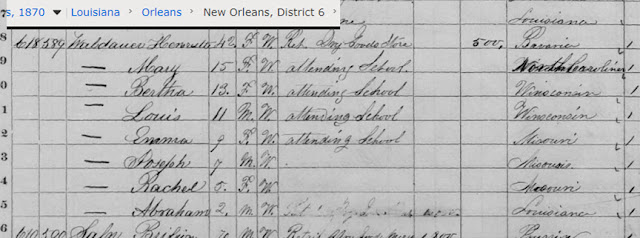 s, 1870 Louisiana Orleans New Orleans, District 6
7 Louisiana
8 618 589 Henrietta 42 F. W. Ret. Dry Goods Store 500 Bavaria
9 — Mary 15 F. W. attending School. North Carolina 1
0 — Bertha 13. F. W. attending School Winsconsin 1
1 — Louis 11 M. W. attending School Winsconsin 1
2 — Emma 9 F. W. attending School Missouri 1
3 — Joseph 7 M. W. Missouri 1
4 — Rachel 5. F. W. Missouri 1
5 — Abraham 2. M. W. Louisiana 1
6 619 590 M. W. Retail 1